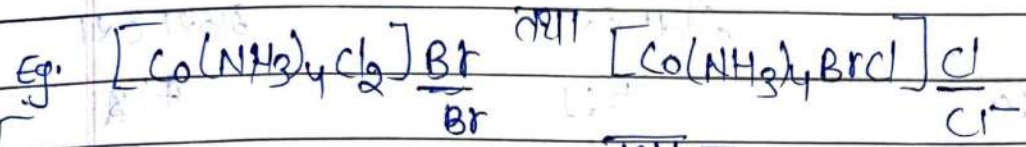 Eg. [Co(NH3)4Cl2]Br तथा [Co(NH3)4BrCl]Cl
Br Cl-